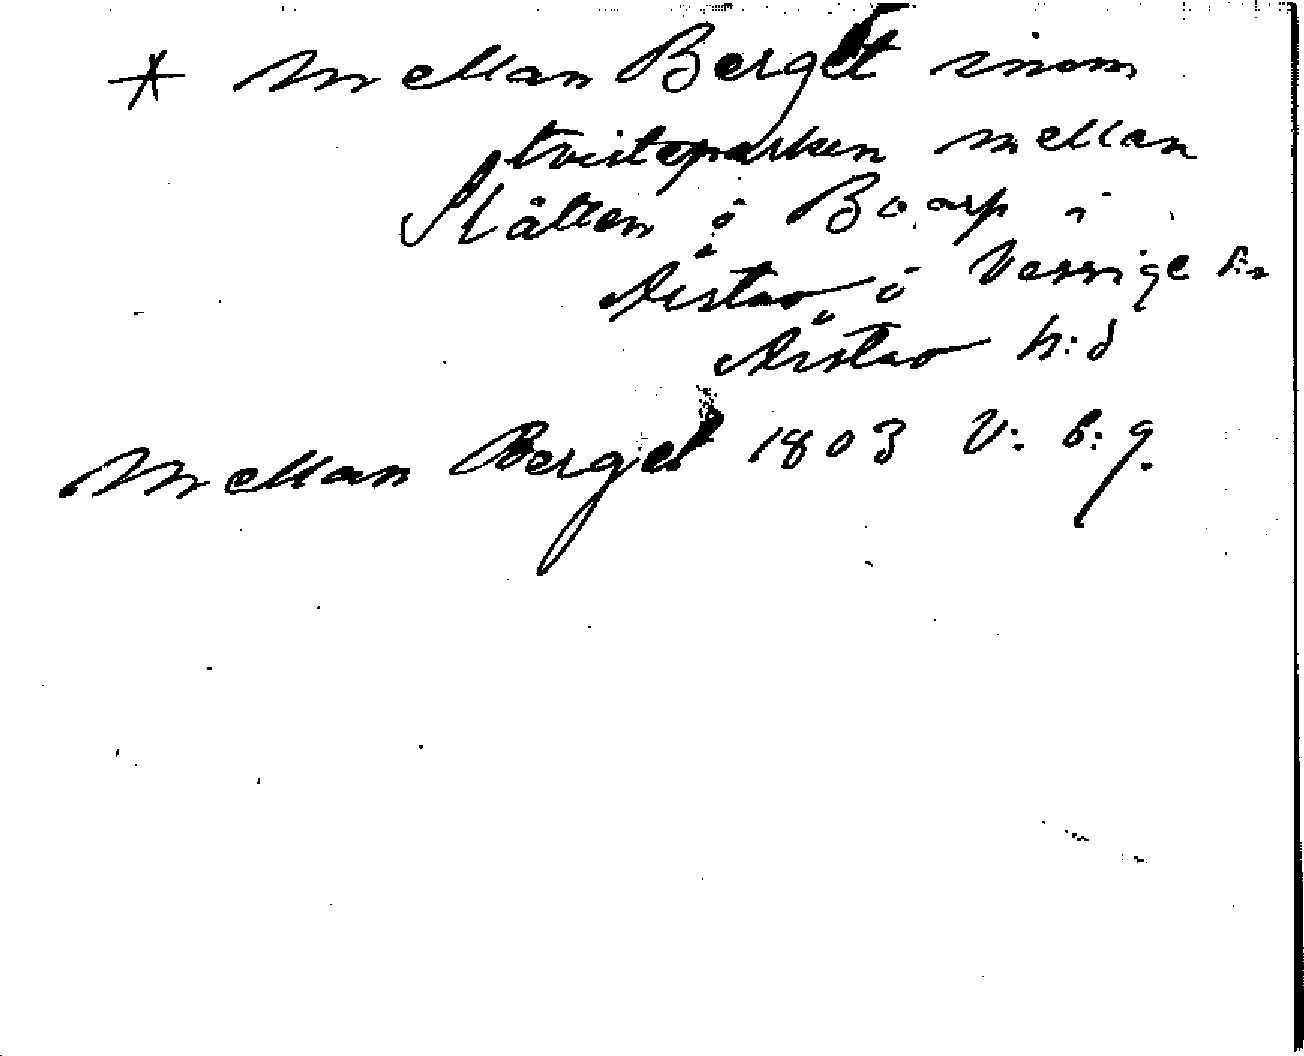 * Mellan Berget inom
tvisteparken mellan
Slätten o Boarp i
Årstad o Vessige sn
Årstad h:d
Mellan Berget 1803 V. b: 9.